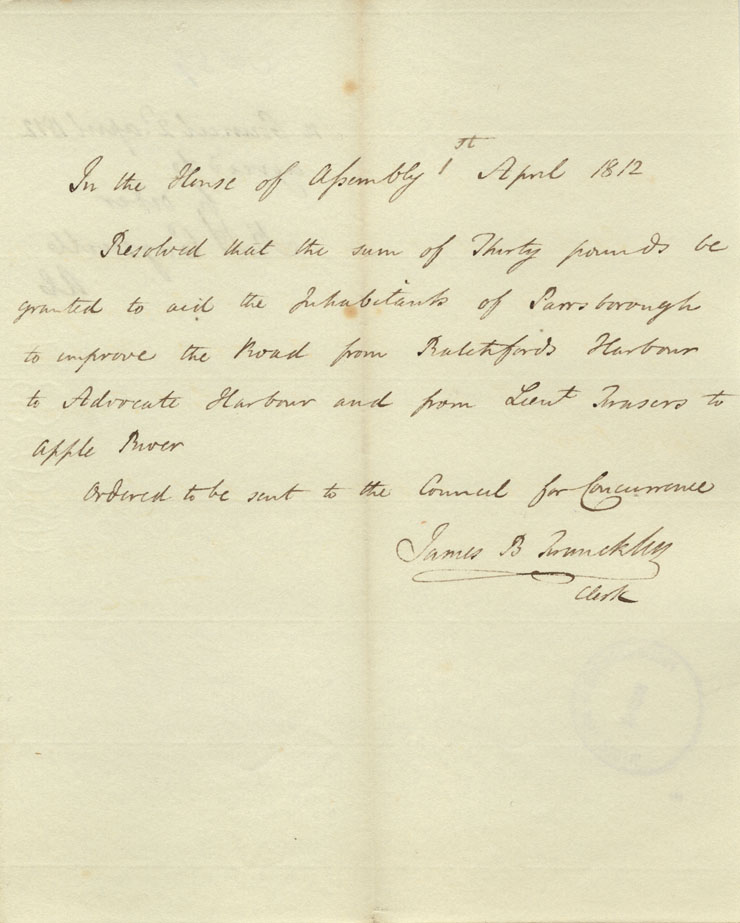 In the House of Assembly 1st April 1812
Resolved that the sum of Thirty pounds be
granted to aid the Inhabitants of Parrsborough
to improve the Road from Ratchfords Harbour
to Advocate Harbour and from Lieut Frasers to
Apple River
Ordered to be sent to the Council for Concurrence
James B Franckley
Clerk